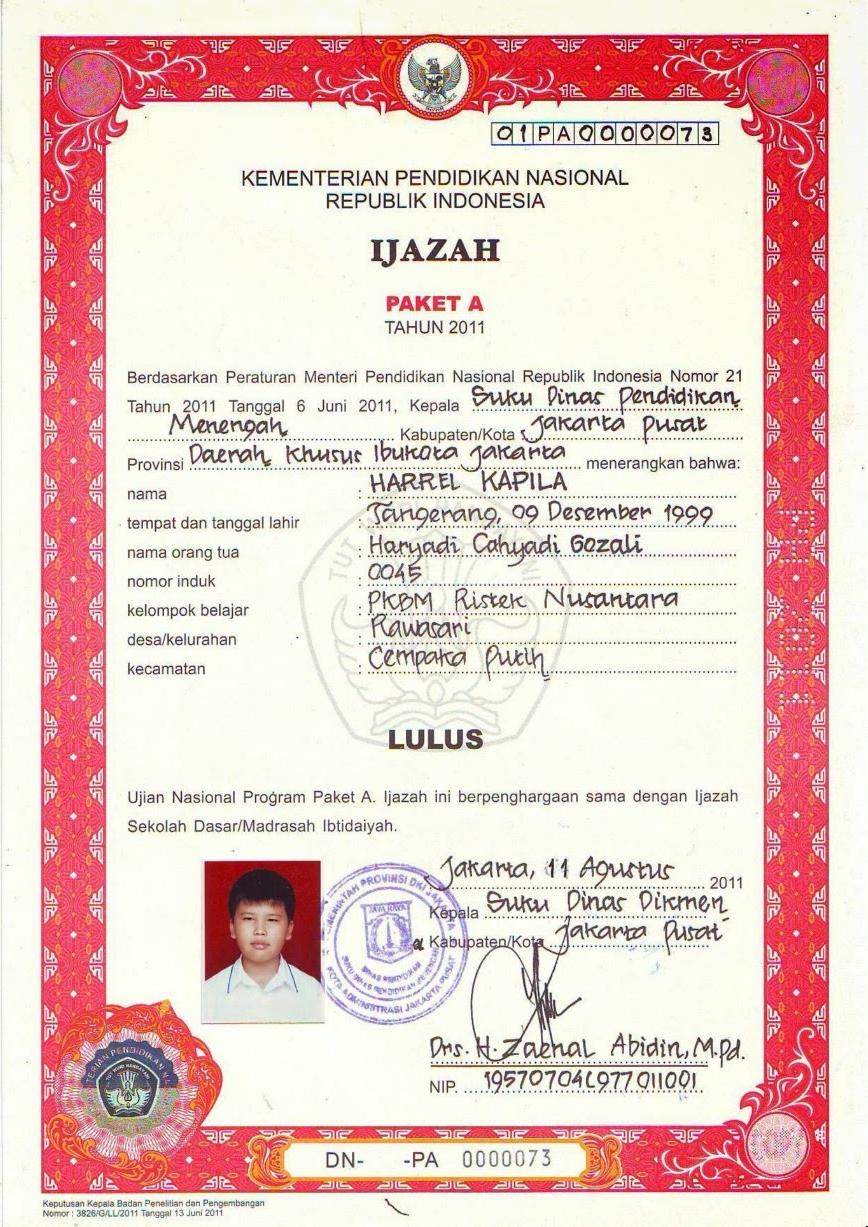 01PA0000073
KEMENTERIAN PENDIDIKAN NASIONAL
REPUBLIK INDONESIA
IJAZAH
PAKET A
TAHUN 2011
Berdasarkan Peraturan Menteri Pendidikan Nasional Republik Indonesia Nomor 21
Tahun 2011 Tanggal 6 Juni 2011, Kepala Suku Dinas Pendidikan
Menengah Kabupaten/Kota Jakarta Pusat
Provinsi Daerah Khusus Ibukota Jakarta menerangkan bahwa:
nama : HARREL KAPILA
tempat dan tanggal lahir : Tangerang, 09 Desember 1999
nama orang tua : Haryadi Cahyadi Gozali
nomor induk : 0045
kelompok belajar : PKBM Ristek Nusantara
desa/kelurahan : Rawasari
kecamatan : Cempaka Putih
LULUS
Ujian Nasional Program Paket A. Ijazah ini berpenghargaan sama dengan Ijazah
Sekolah Dasar/Madrasah Ibtidaiyah.
Jakarta, 11 Agustus 2011
Kepala Suku Dinas Dikmen
Kabupaten/Kota Jakarta Pusat
PEMERINTAH PROVINSI DKI JAKARTA
JAYA RAYA
DINAS PENDIDIKAN
SUKU DINAS PENDIDIKAN MENENGAH
KOTA ADMINISTRASI JAKARTA PUSAT
Drs. H. Zaenal Abidin, M.Pd.
NIP. 195707041977011001
TUT WURI HANDAYANI
DN- -PA 0000073
Keputusan Kepala Badan Penelitian dan Pengembangan
Nomor : 3826/G/LL/2011 Tanggal 13 Juni 2011